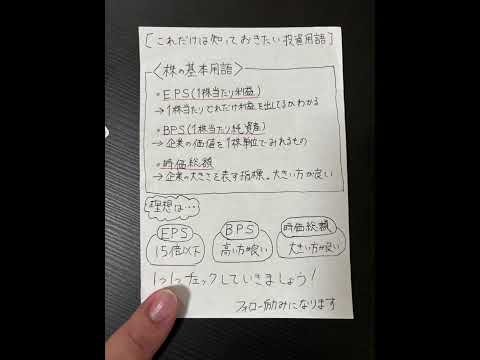 [これだけは知っておきたい投資用語]
〈株の基本用語〉
・EPS(1株当たり利益)
→1株当たりでどれだけ利益を出してるかわかる
・BPS(1株当たり純資産)
→企業の価値を1株単位でみれるもの
・時価総額
→企業の大きさを表す指標。大きい方が良い
理想は…
EPS
15倍以下
BPS
高い方が良い
時価総額
大きい方が良い
1つ1つチェックしていきましょう!
フォロー励みになります